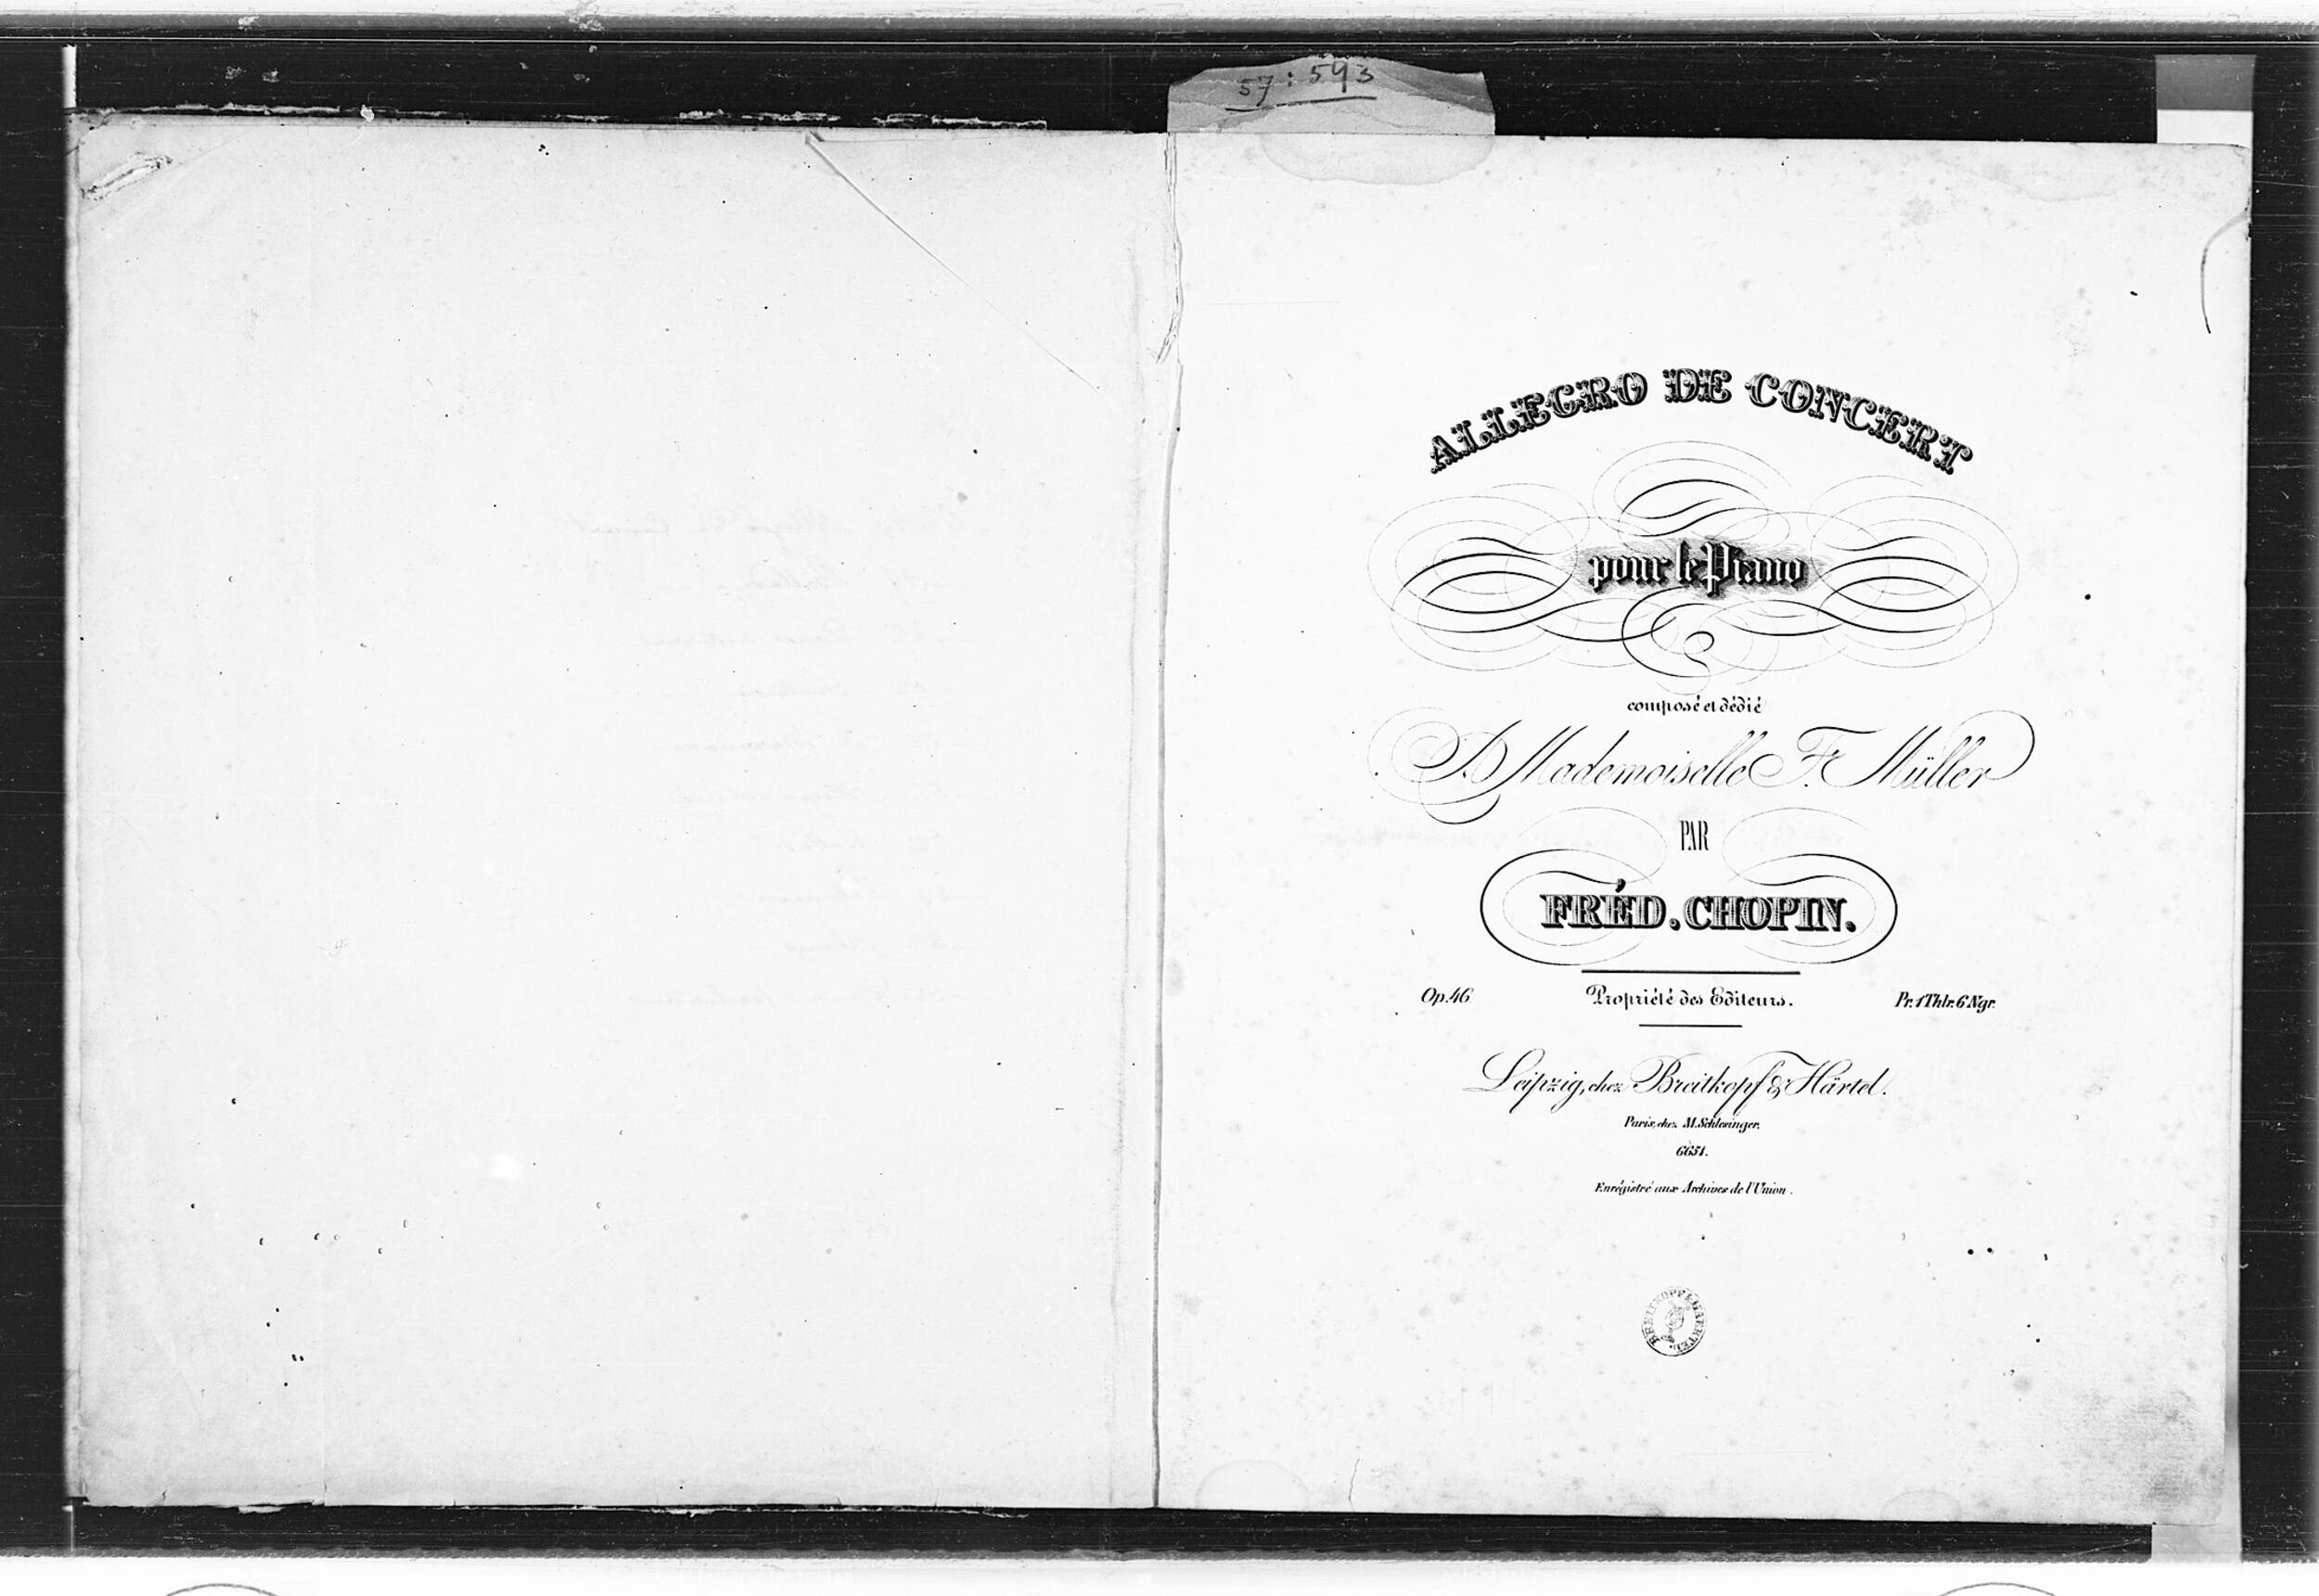 57:593
ALLEGRO DE CONCERT
pour le Piano
composé et dédié
A Mademoiselle F. Müller
PAR
FRÉD. CHOPIN.
Op. 46
Propriété des Editeurs.
Pr. 1 Thlr. 6 Ngr.
Leipzig, chez Breitkopf & Härtel.
Paris, chez M. Schlesinger.
6651.
Enrégistré aux Archives de l'Union.
BREITKOPF & HAERTEL